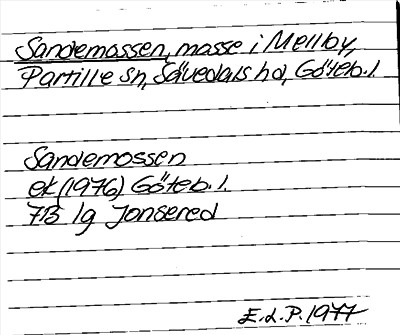 Sandemossen, mosse i Mellby,
Partille sn, Sävedals hd, Göteb. l.
Sandemossen
ek (1976) Göteb. l.
7B 1g Jonsered
E.L.P. 1977